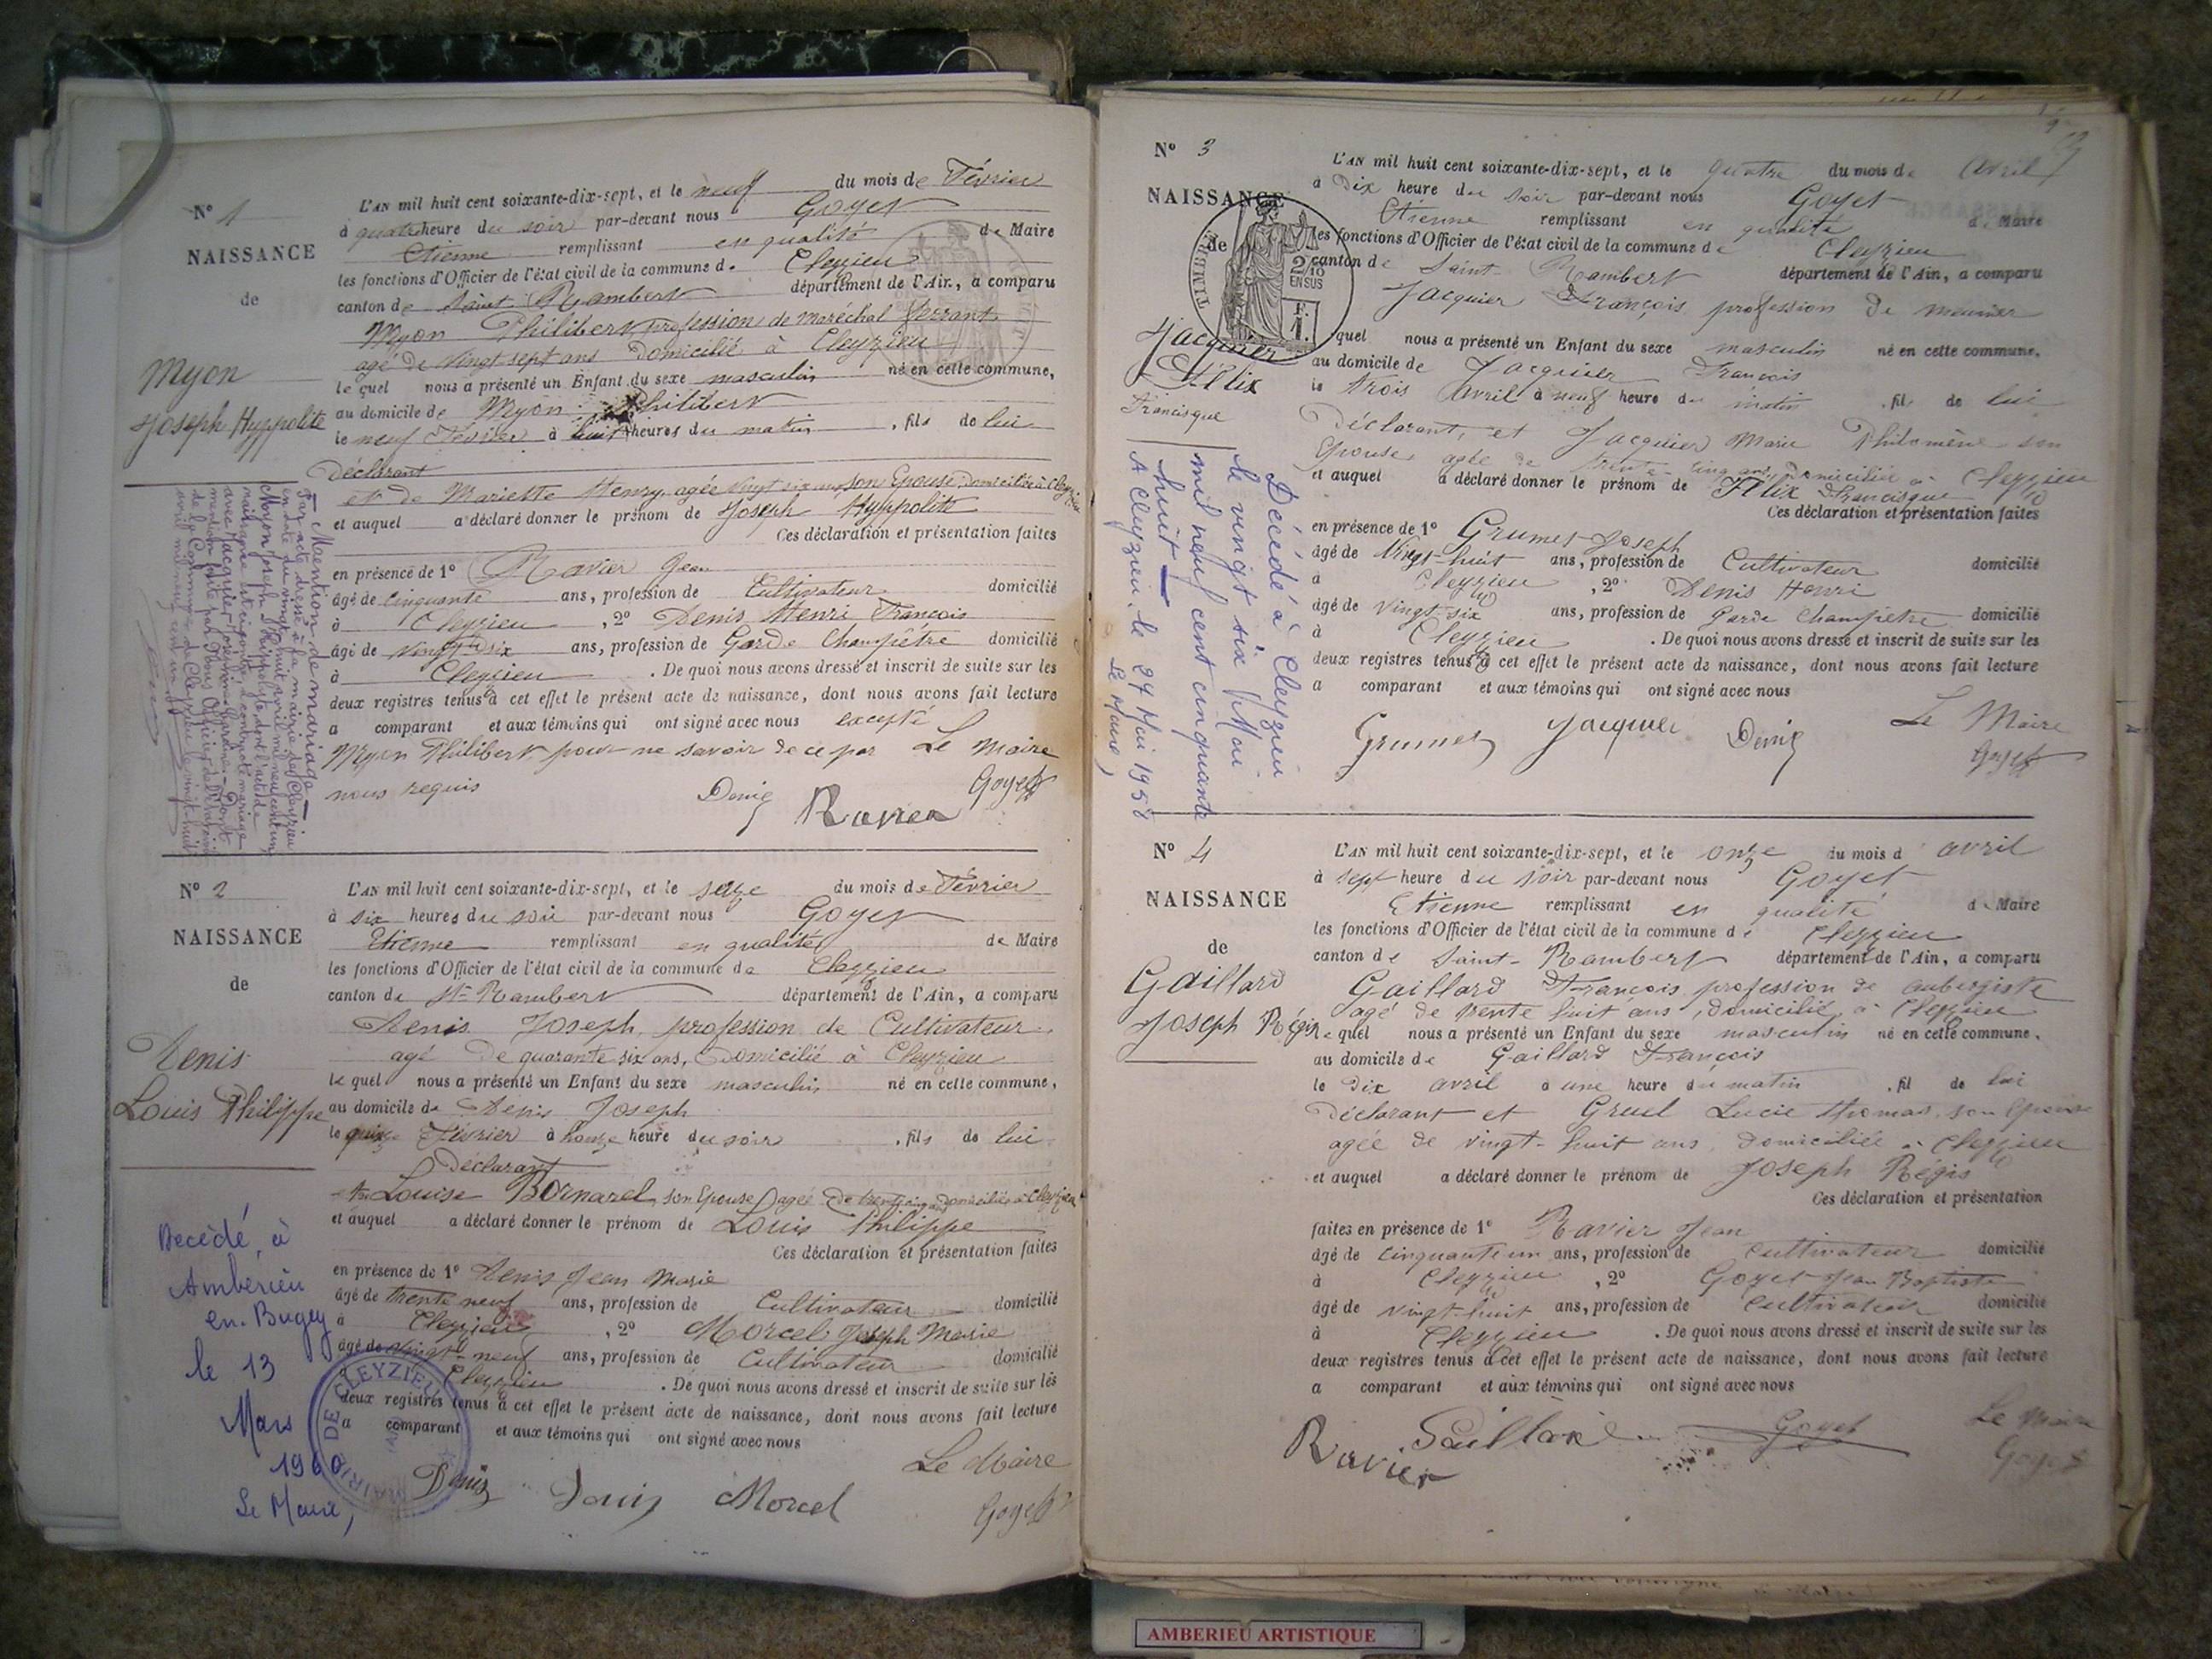 N° 1
NAISSANCE
de
Myon
Joseph Hyppolite
L'AN mil huit cent soixante-dix-sept, et le neuf du mois de Février
à quatre heure du soir par-devant nous Goyet
Etienne remplissant en qualité de Maire
les fonctions d'Officier de l'état civil de la commune de Cleyzieu
canton de Saint Rambert département de l'Ain, a comparu
Myon Philibert profession de maréchal ferrant
agé de vingt sept ans domicilié à Cleyzieu
le quel nous a présenté un Enfant du sexe masculin né en cette commune,
au domicile de Myon Philibert
le neuf Février à huit heures du matin, fils de lui
Déclarant
et de Mariette Henry agée vingt six ans, son Epouse, domiciliée à Cleyzieu
et auquel a déclaré donner le prénom de Joseph Hyppolite
Ces déclaration et présentation faites
en présence de 1° Ravier Jean
âgé de cinquante ans, profession de Cultivateur domicilié
à Cleyzieu, 2° Denis Henri François
âgé de vingt six ans, profession de Garde Champêtre domicilié
à Cleyzieu. De quoi nous avons dressé et inscrit de suite sur les
deux registres tenus à cet effet le présent acte de naissance, dont nous avons fait lecture
a comparant et aux témoins qui ont signé avec nous excepté
Myon Philibert pour ne savoir de ce par Le Maire
nous requis
Denis Ravier Goyet
Mention de mariage
Par acte dressé à la mairie de Cleyzieu
en date du vingt huit avril mil neuf cent un,
Myon Joseph Hippolyte, dont l'acte de
naissance est ci contre, a contracté mariage
avec Jacquier Joséphine dont
mention faite par Nous Officier de l'état civil
de la Commune de Cleyzieu le vingt-huit
avril mil neuf cent un
N° 2
NAISSANCE
de
Denis
Louis Philippe
L'AN mil huit cent soixante-dix-sept, et le seize du mois de Février
à six heures du soir par-devant nous Goyet
Etienne remplissant en qualité de Maire
les fonctions d'Officier de l'état civil de la commune de Cleyzieu
canton de St Rambert département de l'Ain, a comparu
Denis Joseph, profession de Cultivateur
agé de quarante six ans, domicilié à Cleyzieu
le quel nous a présenté un Enfant du sexe masculin né en cette commune,
au domicile de Denis Joseph
le quinze Février à honze heure du soir, fils de lui
Déclarant
Louise Bornarel, son Epouse agée de trente cinq ans domiciliée à Cleyzieu
et auquel a déclaré donner le prénom de Louis Philippe
Ces déclaration et présentation faites
en présence de 1° Denis Jean Marie
âgé de trente neuf ans, profession de Cultivateur domicilié
à Cleyzieu, 2° Morcel Joseph Marie
âgé de vingt-neuf ans, profession de Cultivateur domicilié
Cleyzieu. De quoi nous avons dressé et inscrit de suite sur les
deux registres tenus à cet effet le présent acte de naissance, dont nous avons fait lecture
a comparant et aux témoins qui ont signé avec nous
Le Maire
Denis Denis Morcel Goyet
Décédé à
Ambérieu
en-Bugey
le 13
Mars
1960
Le Maire,
MAIRIE DE CLEYZIEU
N° 3
NAISSANCE
de
Jacquier
Félix
Francisque
2/10
EN SUS
F.
1.
L'AN mil huit cent soixante-dix-sept, et le quatre du mois de avril
à dix heure du soir par-devant nous Goyet
Etienne remplissant en qualité de Maire
les fonctions d'Officier de l'état civil de la commune de Cleyzieu
canton de Saint Rambert département de l'Ain, a comparu
Jacquier François profession de meunier
quel nous a présenté un Enfant du sexe masculin né en cette commune.
au domicile de Jacquier François
le trois avril à neuf heure du matin, fil de lui
Déclarant, et Jacquier Marie Philomène son
Epouse agée de trente cinq ans, domiciliée à Cleyzieu
et auquel a déclaré donner le prénom de Félix Francisque
Ces déclaration et présentation faites
en présence de 1° Grumet Joseph
âgé de Vingt-huit ans, profession de Cultivateur domicilié
à Cleyzieu, 2° Denis Henri
âgé de vingt six ans, profession de Garde Champêtre domicilié
à Cleyzieu. De quoi nous avons dressé et inscrit de suite sur les
deux registres tenus à cet effet le présent acte de naissance, dont nous avons fait lecture
a comparant et aux témoins qui ont signé avec nous
Le Maire
Grumet Jacquier Denis Goyet
Décédé à Cleyzieu
le vingt six Mai
mil neuf cent cinquante
huit
A Cleyzieu, le 27 Mai 1958
Le Maire,
N° 4
NAISSANCE
de
Gaillard
Joseph Régis
L'AN mil huit cent soixante-dix-sept, et le onze du mois d'avril
à sept heure du soir par-devant nous Goyet
Etienne remplissant en qualité de Maire
les fonctions d'Officier de l'état civil de la commune de Cleyzieu
canton de Saint-Rambert département de l'Ain, a comparu
Gaillard François profession de aubergiste
agé de trente huit ans, domicilié à Cleyzieu
le quel nous a présenté un Enfant du sexe masculin né en cette commune.
au domicile de Gaillard François
le dix avril à une heure du matin, fil de lui
Déclarant et Greul Lucie Thomas, son Epouse
agée de vingt-huit ans, domiciliée à Cleyzieu
et auquel a déclaré donner le prénom de Joseph Regis
Ces déclaration et présentation
faites en présence de 1° Ravier Jean
âgé de cinquante un ans, profession de Cultivateur domicilié
à Cleyzieu, 2° Goyet Jean Baptiste
âgé de vingt-huit ans, profession de Cultivateur domicilié
à Cleyzieu. De quoi nous avons dressé et inscrit de suite sur les
deux registres tenus à cet effet le présent acte de naissance, dont nous avons fait lecture
a comparant et aux témoins qui ont signé avec nous
Le Maire
Ravier Gaillard Goyet Goyet
AMBERIEU ARTISTIQUE